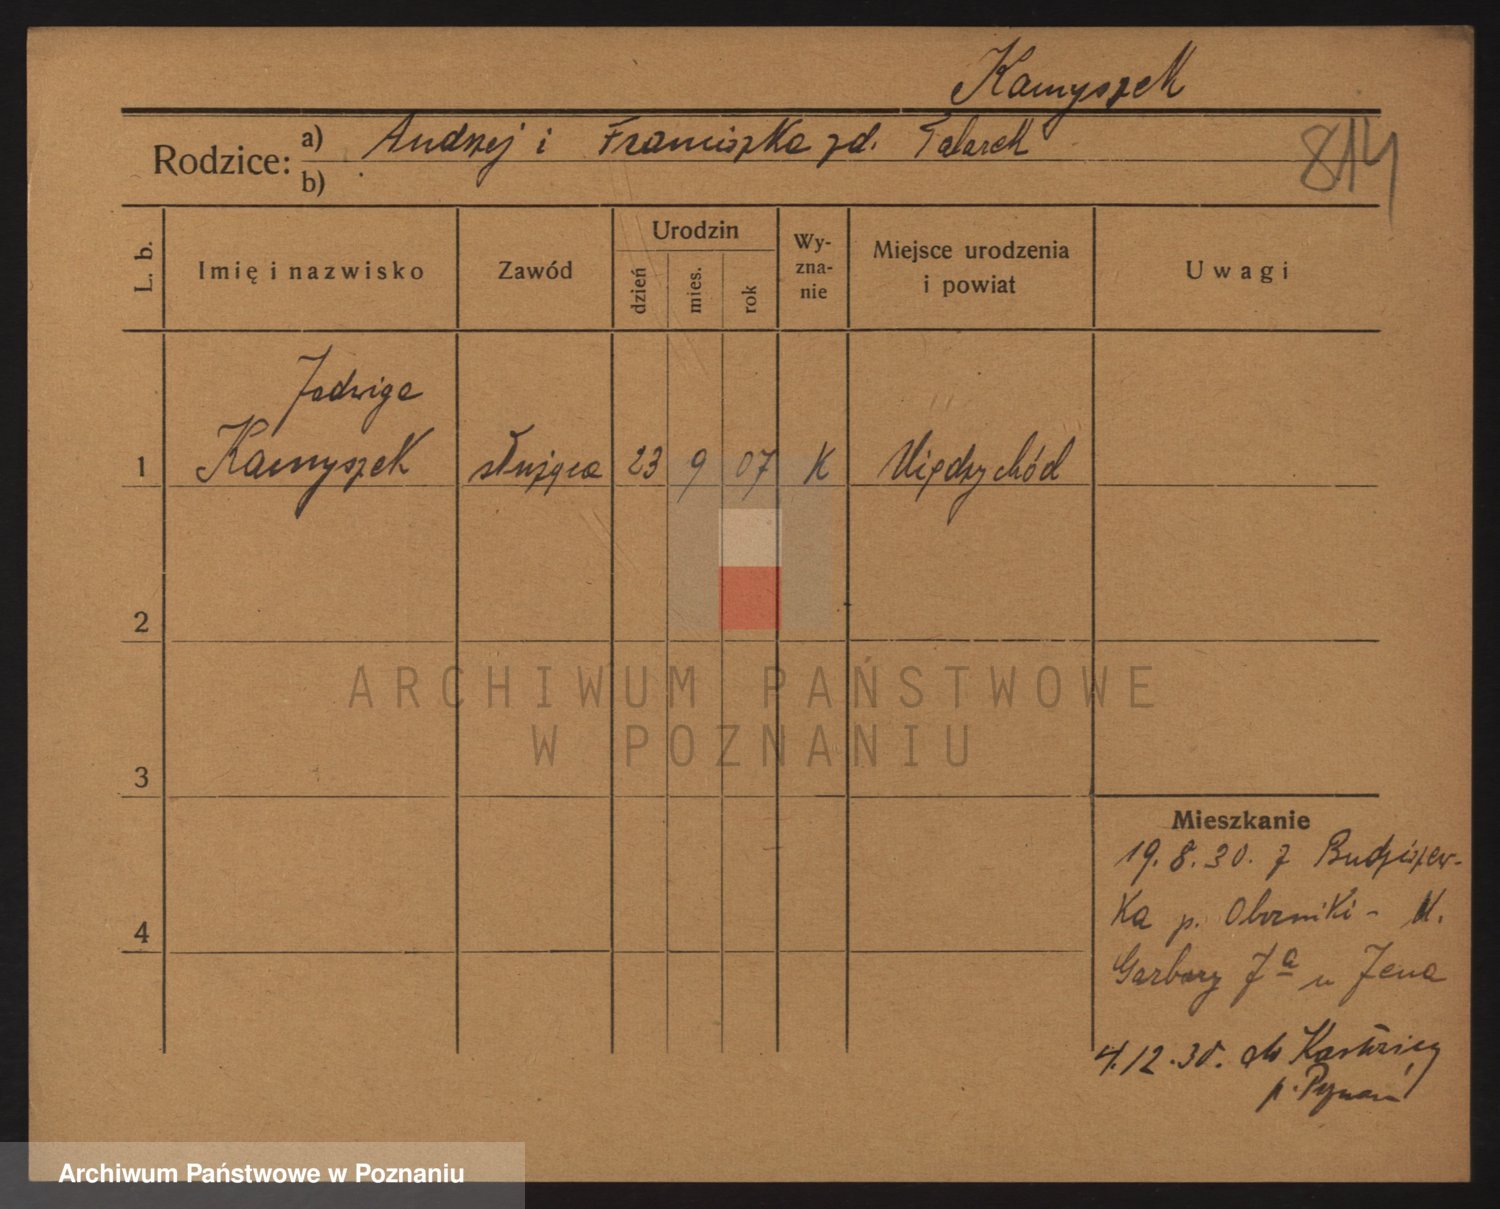 Kamyszek
Rodzice: a) Andrzej i Franciszka zd. Talarek
b)
814
L. b. Imię i nazwisko Zawód Urodzin dzień mies. rok Wy-zna-nie Miejsce urodzenia i powiat Uwagi
Jadwiga
1 Kamyszek służąca 23 9 07 K Międzychód
2
ARCHIWUM PAŃSTWOWE
W POZNANIU
3
Mieszkanie
19.8.30. z Budziszew-
4 ka p. Oborniki - M.
Garbary 7a u Jena
4.12.30. do
p. Poznań
Archiwum Państwowe w Poznaniu